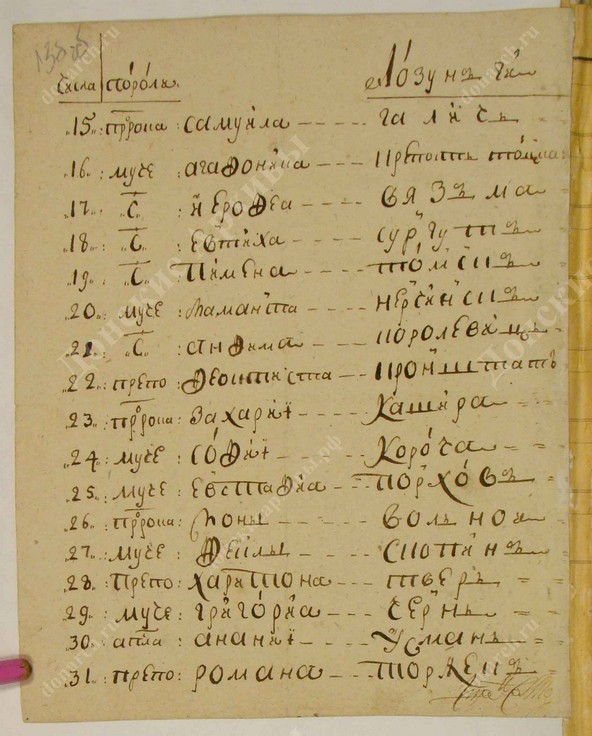 Числа пороль Лозунги
15: прока: самуила - - - - галичь
16: муче: агафоника - - - - крепость
17: С: иерофеа - - - - вязъма
18: С: евтиха - - - - сургутъ
19: С: пимена - - - - томскъ
20: муче: маманта - - - нерчинскъ
21: С: анфима - - - королевецъ
22: препо: феоктиста - - кронштатъ
23: прока: захариї - - - - кашира
24: муче: софиї - - - - короча
25: муче: евстафиа - - - порховъ
26: прока: ионы - - - - волынска
27: муче: феклы - - - - скопинъ
28: препо: харитона - - - тверь
29: муче: григориа - - - чернь
30: апла: ананиї - - - - усмань
31: препо: романа - - - - торжекъ